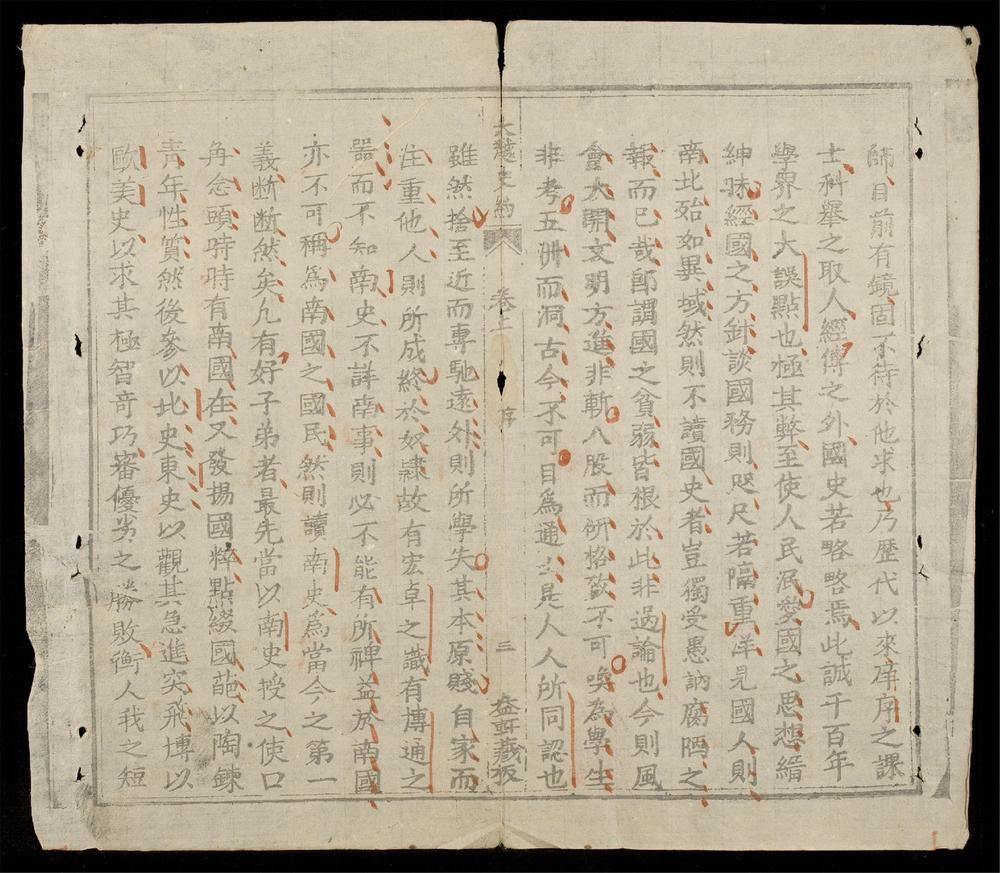 師目前有鏡固不待於他求也乃歷代以來庠序之課
士科舉之取人經傳之外國史若略略焉此誠千百年
學界之大誤點也極其弊至使人民泯愛國之思想縉
紳昧經國之方針談國務則咫尺若隔重洋見國人則
南北殆如異域然則不讀國史者豈獨受愚訥腐陋之
報而已哉卽謂國之貧弱皆根於此非過論也今則風
會大開文明方進非斬八股而研格致不可喚為學生
非考五洲而洞古今不可目爲通士是人人所同認也
大越史約 卷上 序 三 益軒藏板
雖然捨至近而專馳遠外則所學失其本原賤自家而
注重他人則所成終於奴隷故有宏卓之識有博通之
器而不知南史不詳南事則必不能有所裨益於南國
亦不可稱爲南國之國民然則讀南史爲當今之第一
義斷斷然矣凢有好子弟者最先當以南史授之使口
角念頭時時有南國在又發揚國粹點綴國葩以陶鍊
靑年性質然後參以北史東史以觀其急進突飛博以
歐美史以求其極智奇巧審優劣之勝敗衡人我之短